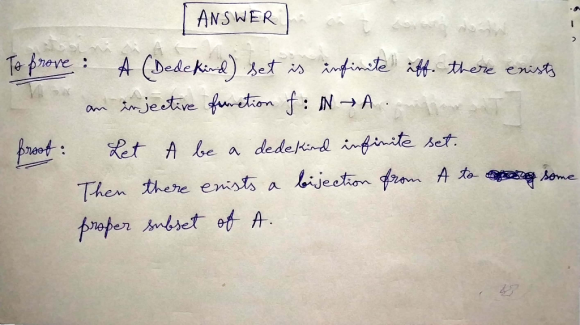 ANSWER
To prove : A (Dedekind) set is infinite iff. there exists
an injective function f : ℕ → A .
proof : Let A be a dedekind infinite set.
Then there exists a bijection from A to some
proper subset of A.